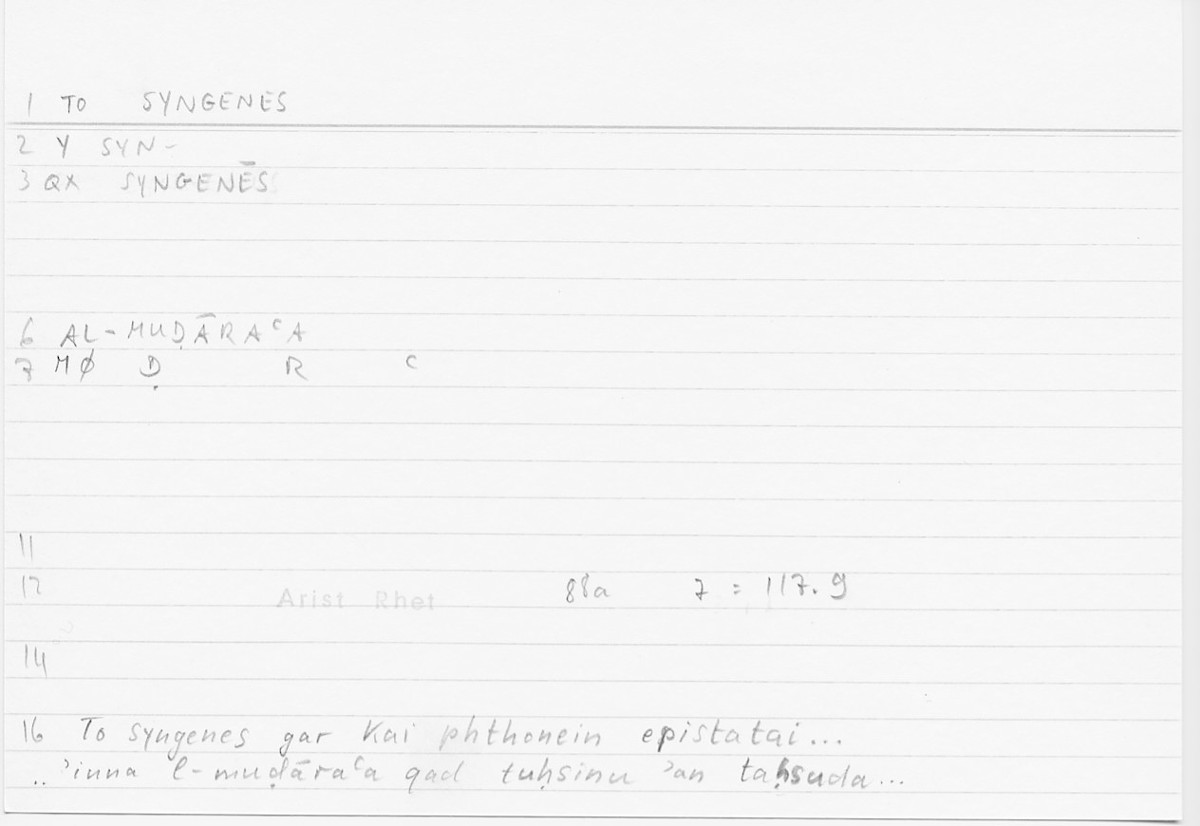 1 TO SYNGENES
2 Y SYN-
3 QX SYNGENĒS
6 AL-MUḌĀRAᶜA
7 MØ Ḍ R ᶜ
11
12 Arist Rhet 88a 7 = 117.9
14
16 To syngenes gar kai phthonein epistatai...
..ʾinna l-muḍāraᶜa qad tuḥsinu ʾan taḥsuda...